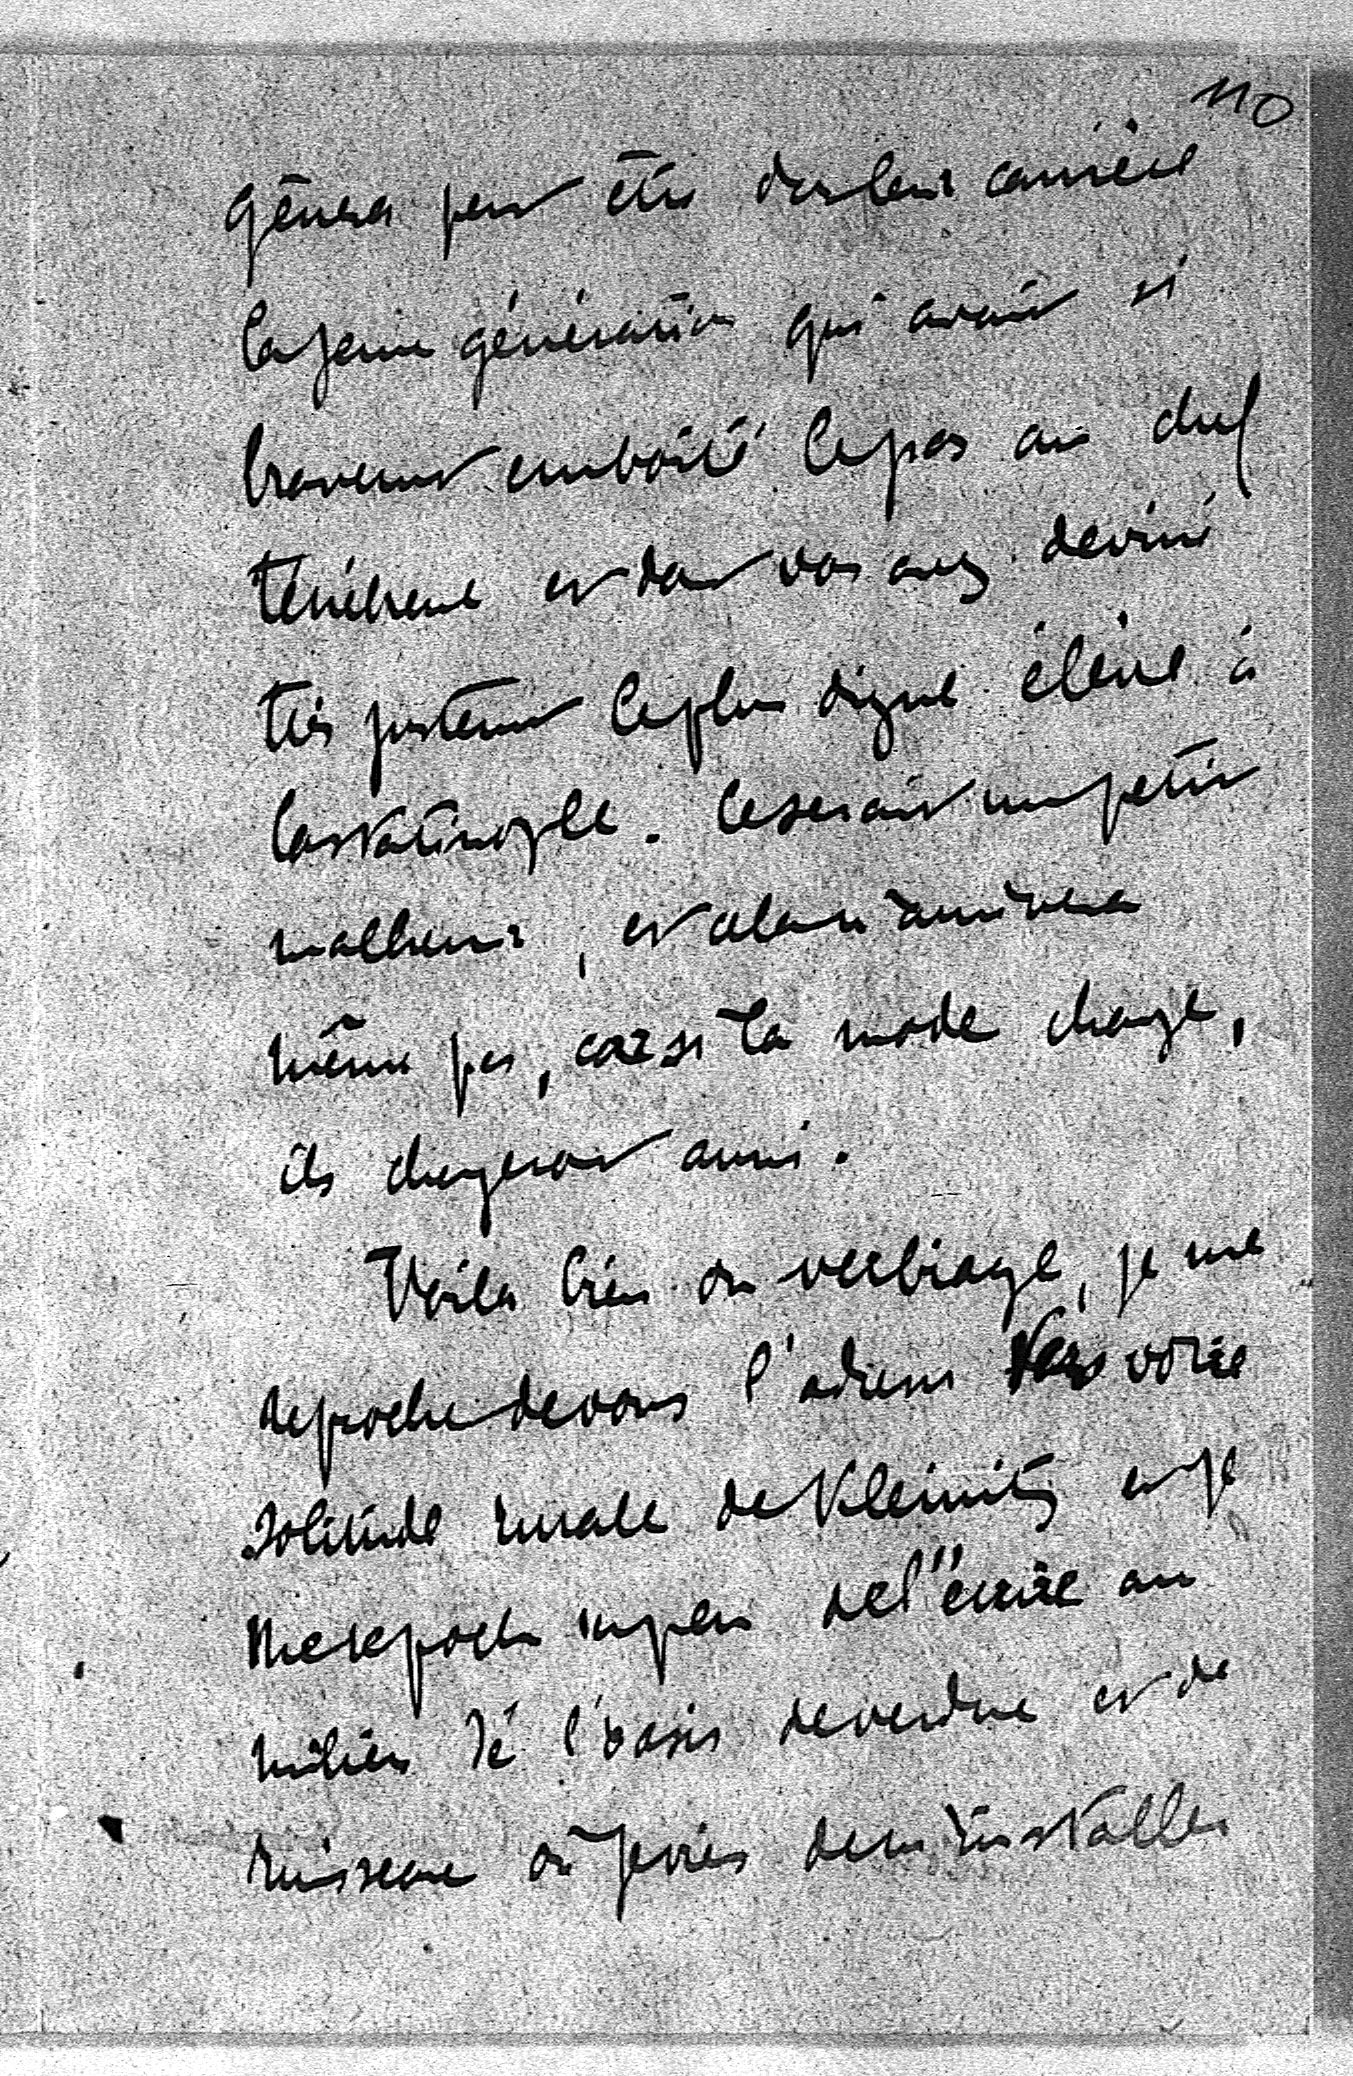 110
gênera peut être dans leur carrière
la jeune génération qui avait si
bravement emboîté le pas au chef
ténébreux et dont vous avez deviné
très justement le plus digne élève à
Constantinople. Ce serait un petit
malheur, et cela n'arrivera
même pas, car si la mode change,
ils changeront aussi.
Voilà bien du verbiage, je me
reproche de vous l'adresser vers votre
solitude rurale de Kleinitz et je
me reproche un peu de l'écrire au
milieu de l'oasis de verdure et de
ruisseaux où je viens de m'installer